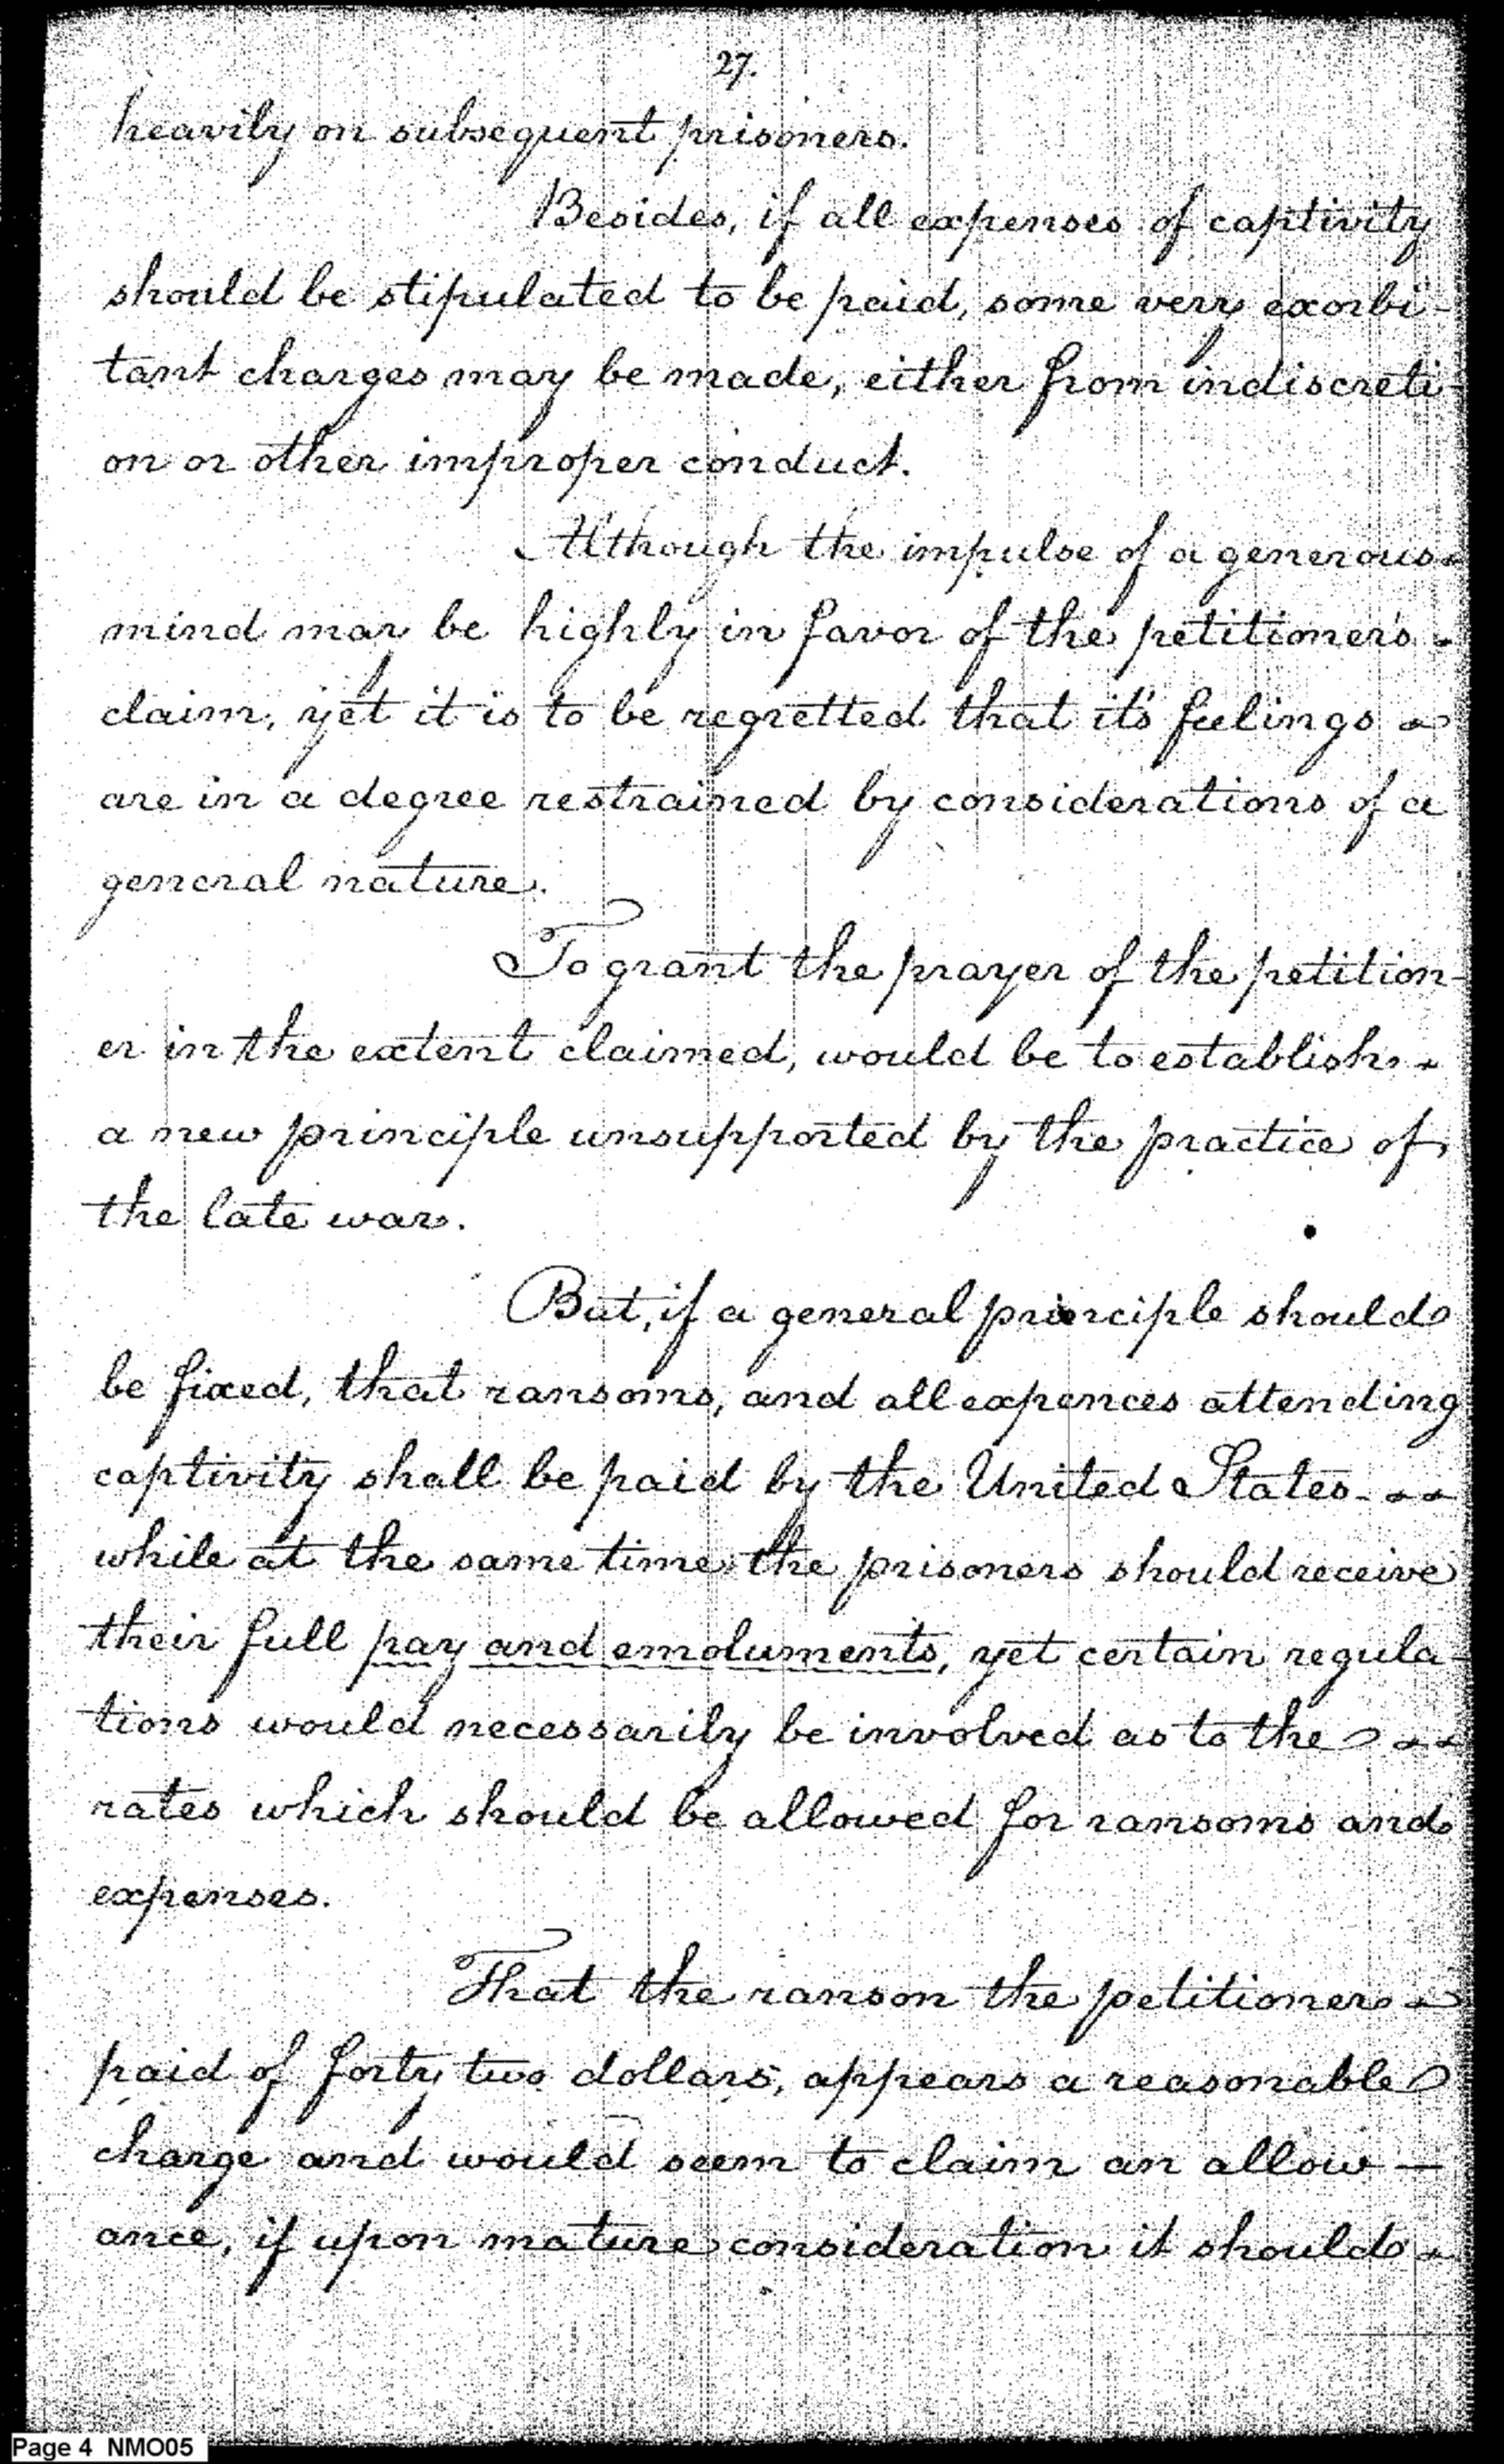 27.
heavily on subsequent prisoners.
Besides, if all expenses of captivity
should be stipulated to be paid, some very exorbi-
tant charges may be made, either from indiscreti-
on or other improper conduct.
Although the impulse of a generous
mind may be highly in favor of the petitioner's
claim, yet it is to be regretted that it's feelings
are in a degree restrained by considerations of a
general nature.
To grant the prayer of the petition-
er in the extent claimed, would be to establish
a new principle unsupported by the practice of
the late war.
But, if a general principle should
be fixed, that ransoms, and all expences attending
captivity shall be paid by the United States
while at the same time the prisoners should receive
their full pay and emoluments, yet certain regula-
tions would necessarily be involved as to the
rates which should be allowed for ransoms and
expenses.
That the ranson the petitioner
paid of forty two dollars, appears a reasonable
charge and would seem to claim an allow-
ance, if upon mature consideration it should
Page 4 NMO05